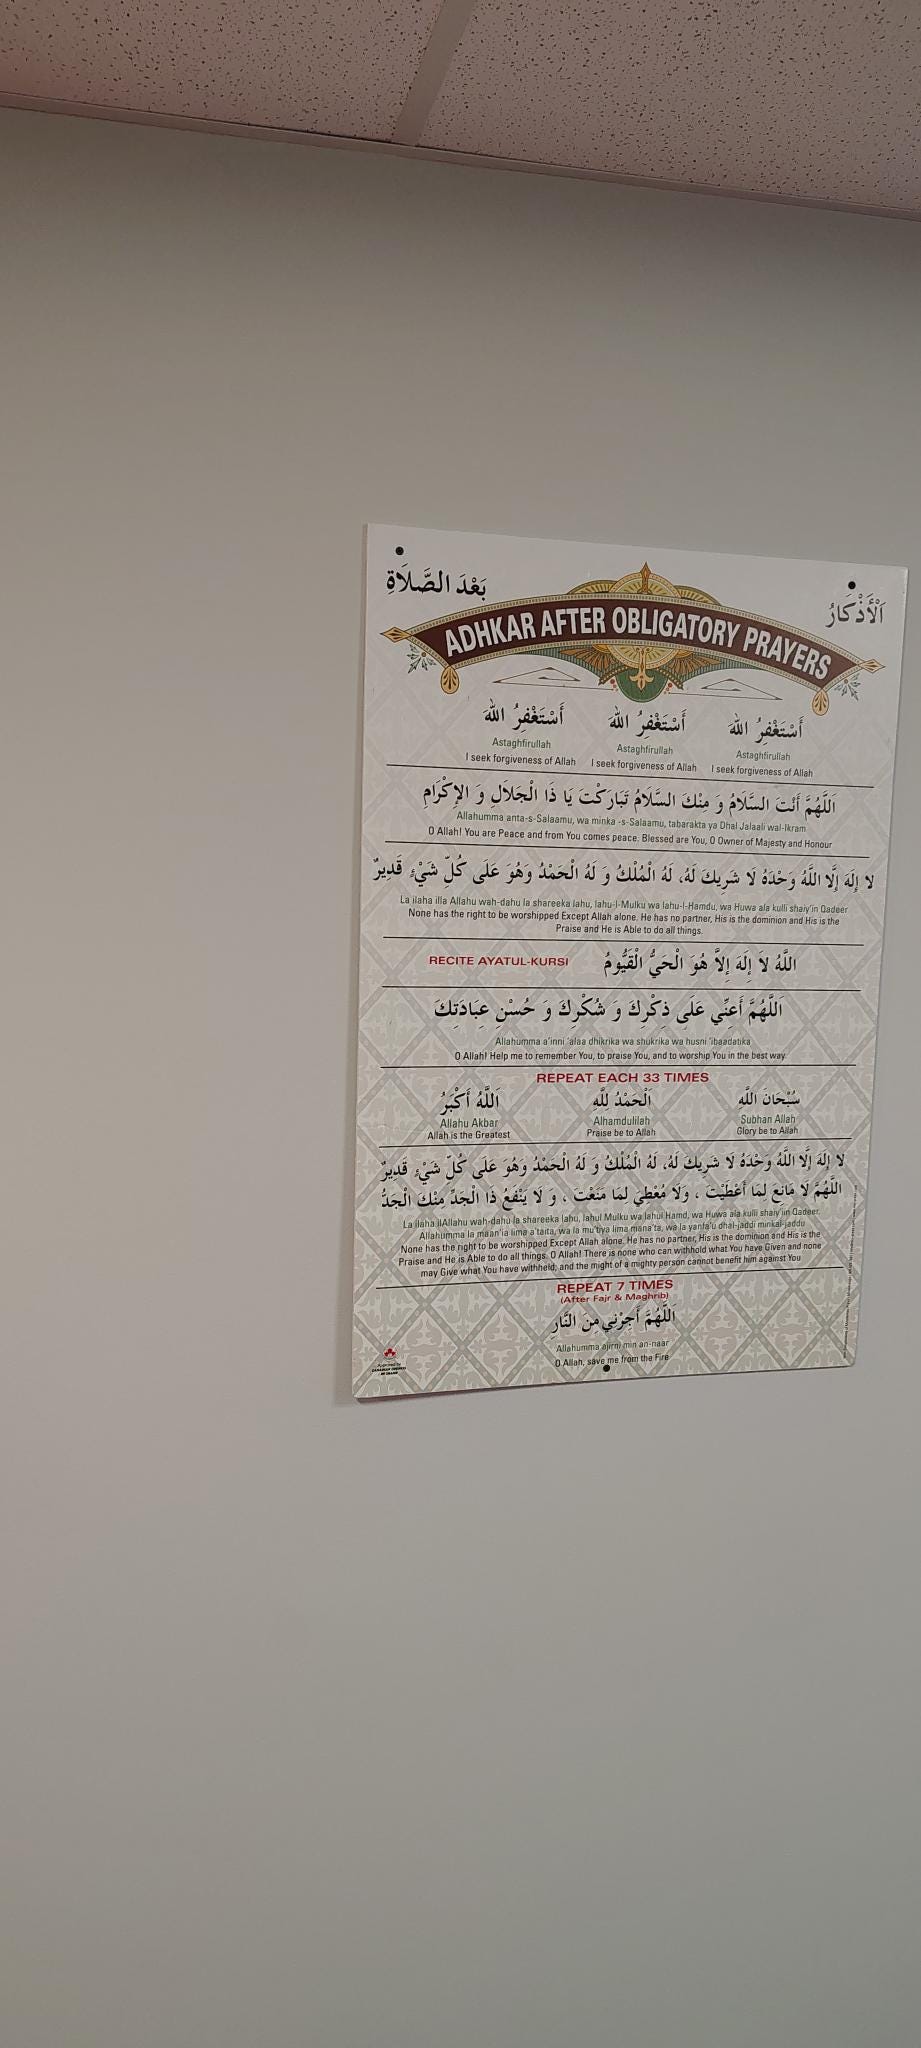 الْأَذْكَارُ بَعْدَ الصَّلَاةِ
ADHKAR AFTER OBLIGATORY PRAYERS
أَسْتَغْفِرُ اللهَ أَسْتَغْفِرُ اللهَ أَسْتَغْفِرُ اللهَ
Astaghfirullah Astaghfirullah Astaghfirullah
I seek forgiveness of Allah I seek forgiveness of Allah I seek forgiveness of Allah
اَللَّهُمَّ أَنْتَ السَّلَامُ وَ مِنْكَ السَّلَامُ تَبَارَكْتَ يَا ذَا الْجَلَالِ وَ الإِكْرَامِ
Allahumma anta-s-Salaamu, wa minka -s-Salaamu, tabarakta ya Dhal Jalaali wal-Ikram
O Allah! You are Peace and from You comes peace. Blessed are You, O Owner of Majesty and Honour
لا إِلَهَ إِلَّا اللَّهُ وَحْدَهُ لَا شَرِيكَ لَهُ، لَهُ الْمُلْكُ وَ لَهُ الْحَمْدُ وَهُوَ عَلَى كُلِّ شَيْءٍ قَدِيرٌ
La ilaha illa Allahu wah-dahu la shareeka lahu, lahu-l-Mulku wa lahu-l-Hamdu, wa Huwa ala kulli shaiy'in Qadeer
None has the right to be worshipped Except Allah alone. He has no partner, His is the dominion and His is the
Praise and He is Able to do all things.
RECITE AYATUL-KURSI اللَّهُ لَا إِلَهَ إِلاَّ هُوَ الْحَيُّ الْقَيُّومُ
اَللَّهُمَّ أَعِنِّي عَلَى ذِكْرِكَ وَ شُكْرِكَ وَ حُسْنِ عِبَادَتِكَ
Allahumma a'inni 'alaa dhikrika wa shukrika wa husni 'ibaadatika
O Allah! Help me to remember You, to praise You, and to worship You in the best way.
REPEAT EACH 33 TIMES
سُبْحَانَ اللَّهِ اَلْحَمْدُ لِلَّهِ اَللَّهُ أَكْبَرُ
Allahu Akbar Alhamdulilah Subhan Allah
Allah is the Greatest Praise be to Allah Glory be to Allah
لا إِلَهَ إِلَّا اللَّهُ وَحْدَهُ لَا شَرِيكَ لَهُ، لَهُ الْمُلْكُ وَ لَهُ الْحَمْدُ وَهُوَ عَلَى كُلِّ شَيْءٍ قَدِيرٌ
اللَّهُمَّ لَا مَانِعَ لِمَا أَعْطَيْتَ ، وَلَا مُعْطِي لِمَا مَنَعْتَ ، وَ لَا يَنْفَعُ ذَا الْجَدِّ مِنْكَ الْجَدُّ
La ilaha ilAllahu wah-dahu la shareeka lahu, lahul Mulku wa lahul Hamd, wa Huwa ala kulli shaiy'iin Qadeer.
Allahumma la maan'ia lima a'taita, wa la mu'tiya lima mana'ta, wa la yanfa'u dhal-jaddi minkal-jaddu
None has the right to be worshipped Except Allah alone. He has no partner, His is the dominion and His is the
Praise and He is Able to do all things. O Allah! There is none who can withhold what You have Given and none
may Give what You have withheld; and the might of a mighty person cannot benefit him against You
REPEAT 7 TIMES
(After Fajr & Maghrib)
اَللَّهُمَّ أَجِرْنِي مِنَ النَّارِ
Allahumma ajirni min an-naar
O Allah, save me from the Fire
Approved by
CANADIAN COUNCIL
OF IMAMS